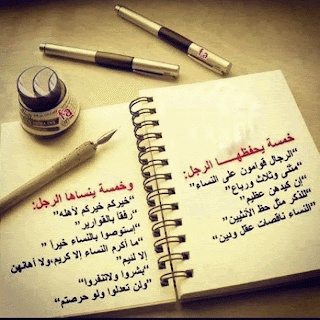 خمسة يحفظهـــا الرجل:
"الرجال قوامون على النساء"
"مثنى وثلاث ورباع"
"إن كيدهن عظيم"
"للذكر مثل حظ الأنثيين"
"النساء ناقصات عقل ودين"
وخمسة ينساها الرجل:
"خيركم خيركم لأهله"
"رفقا بالقوارير"
"إستوصوا بالنساء خيرا"
"ما أكرم النساء إلا كريم،ولا أهانهن
إلا لئيم"
"بشروا ولاتنفروا"
"ولن تعدلوا ولو حرصتم"